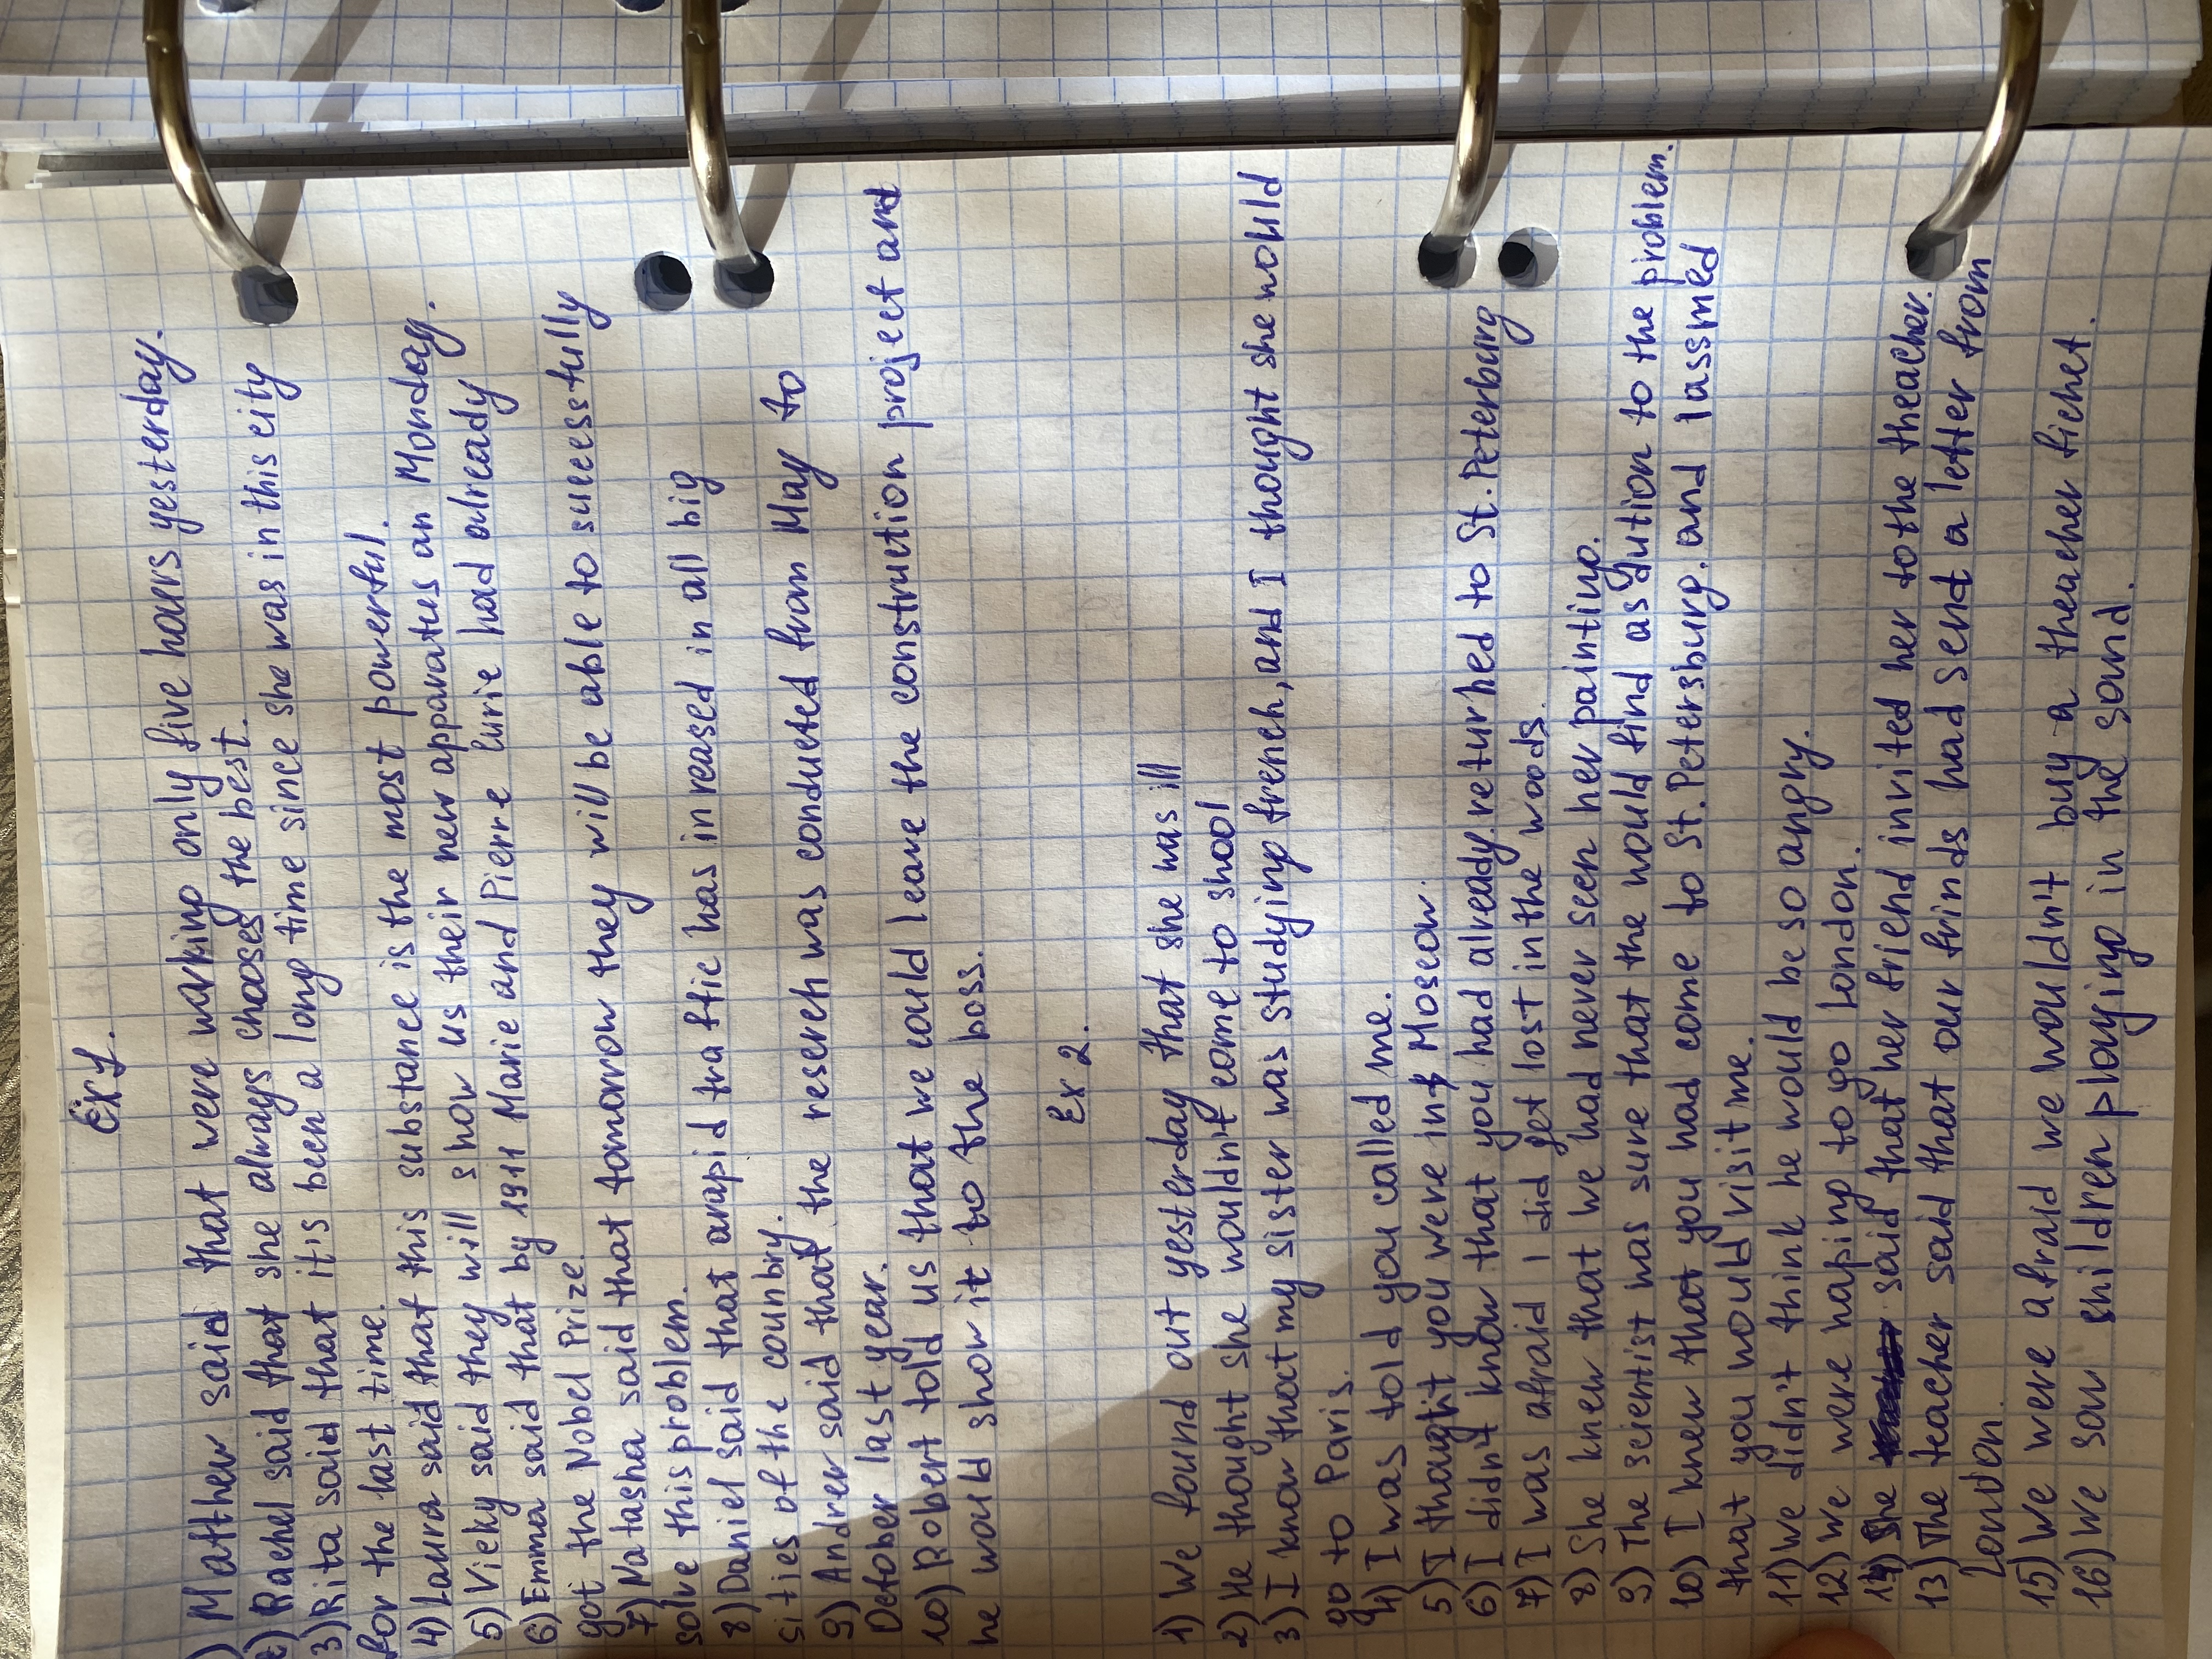 Ex 1.
1) Mather said that were working only five hours yesterday.
2) Rachel said that she always chooses the best.
3) Rita said that it is been a long time since she was in this city
for the last time.
4) Laura said that this substance is the most powerful.
5) Vicky said they will show us their new apparatus on Monday.
6) Emma said that by 1911 Marie and Pierre Curie had already
got the Nobel Prize.
7) Natasha said that tomorrow they will be able to successfully
solve this problem.
8) Daniel said that arapid traffic has increased in all big
sities of the counbry.
9) Andrer said that the reserch was conducted from May to
October last year.
10) Robert told us that we could leave the construction project and
he would show it to the boss.
Ex 2.
1) We found out yesterday that she was ill
2) He thought she wouldn't come to shool
3) I know that my sister was studying french, and I thought she would
go to Paris.
4) I was told you called me.
5) I thought you were in Moscow.
6) I didn't know that you had already returned to St. Peterburg
7) I was afraid I did get lost in the woods.
8) She knew that we had never seen her painting.
9) The scientist was sure that the would find a solution to the problem.
10) I knew that you had come to St. Petersburg, and I assmed
that you would visit me.
11) We didn't think he would be so angry.
12) We were hoping to go London.
14) She said that her friend invited her to the theacher.
13) The teacher said that our frinds had send a letter from
London.
15) We were afraid we wouldn't buy a theacher ticket.
16) We saw shildren playing in the sand.